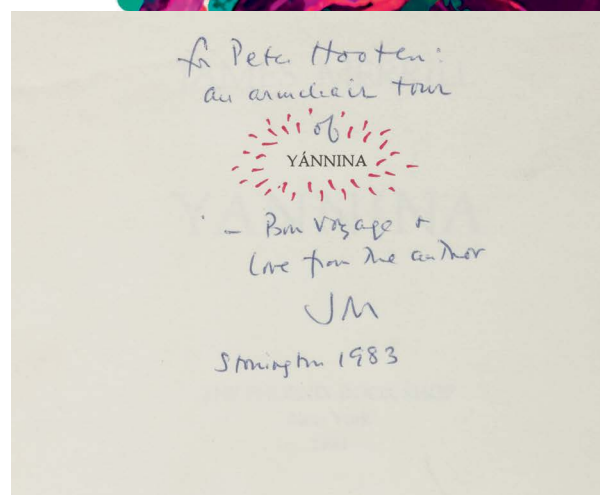 for Peter Hooten:
an armchair tour
of
YÁNNINA
– Bon voyage &
Love from the author
JM
Stonington 1983
YÁNNINA